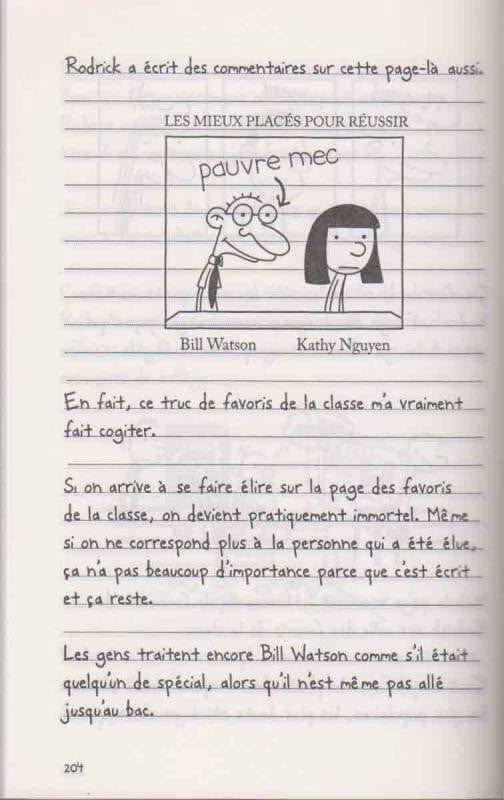 Rodrick a écrit des commentaires sur cette page-là aussi.
LES MIEUX PLACÉS POUR RÉUSSIR
pauvre mec
Bill Watson Kathy Nguyen
En fait, ce truc de favoris de la classe m'a vraiment
fait cogiter.
Si on arrive à se faire élire sur la page des favoris
de la classe, on devient pratiquement immortel. Même
si on ne correspond plus à la personne qui a été élue,
ça n'a pas beaucoup d'importance parce que c'est écrit
et ça reste.
Les gens traitent encore Bill Watson comme s'il était
quelqu'un de spécial, alors qu'il n'est même pas allé
jusqu'au bac.
204